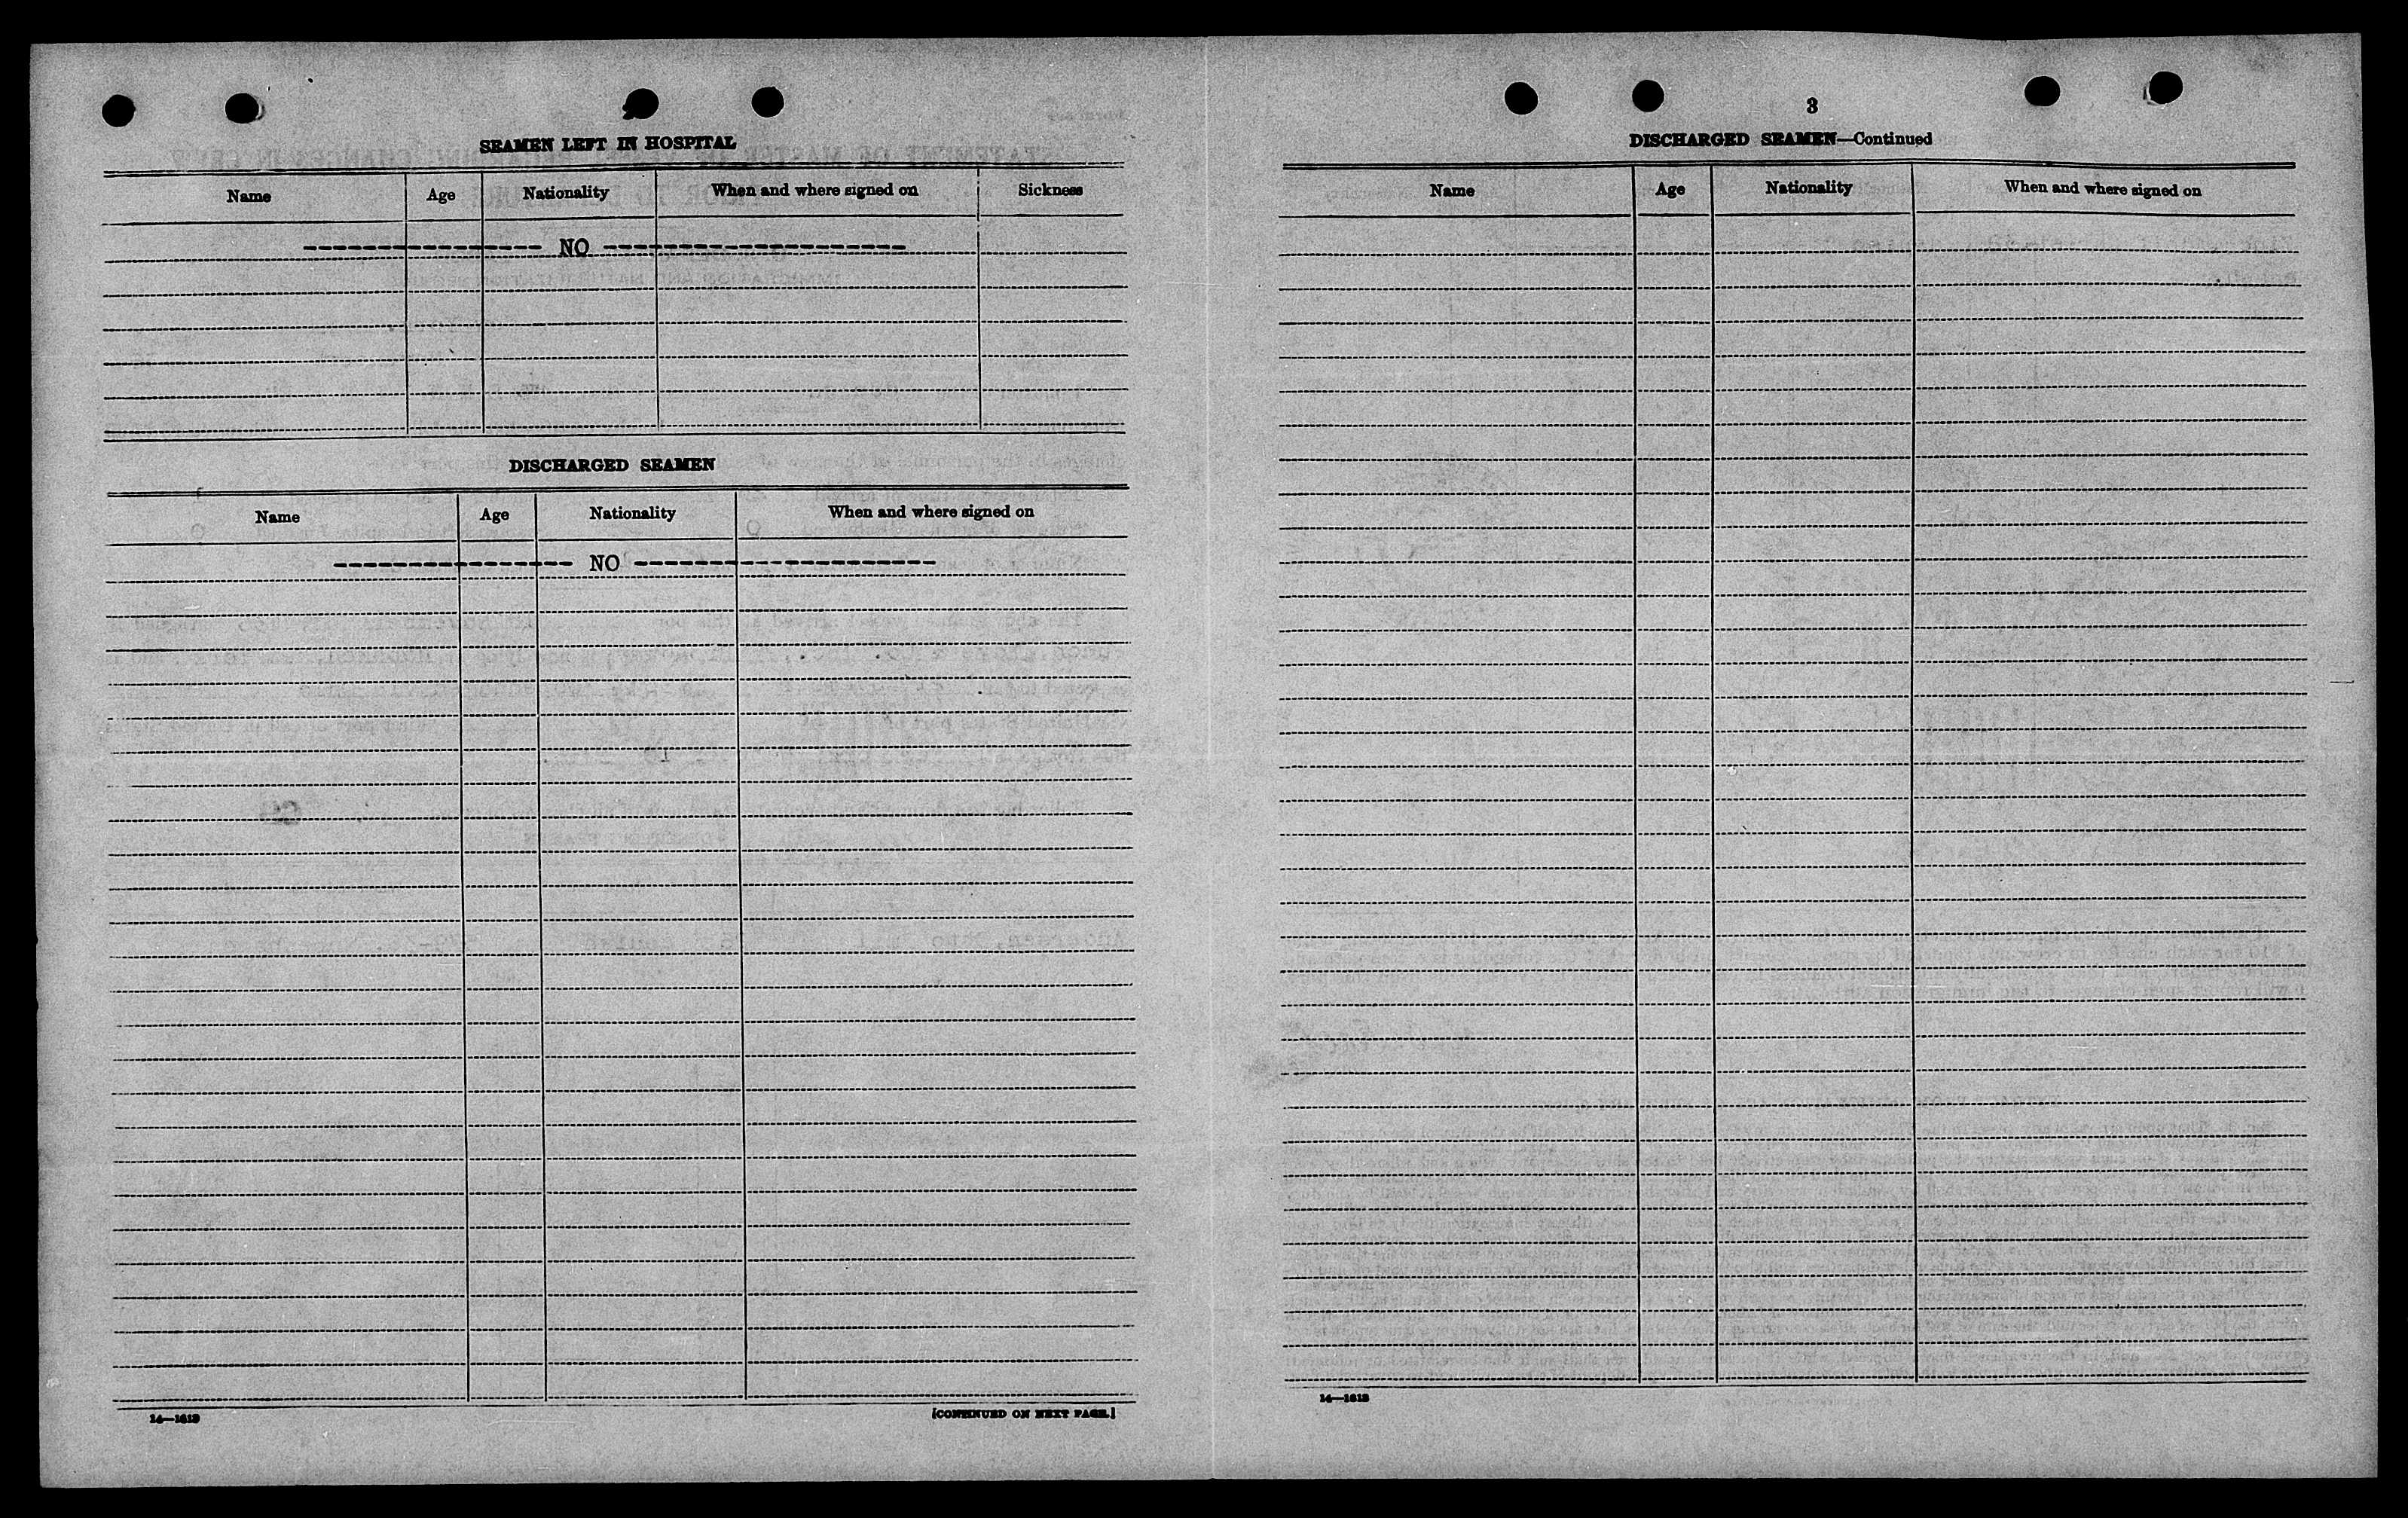 SEAMEN LEFT IN HOSPITAL
Name Age Nationality When and where signed on Sickness
---------------- NO --------------------
DISCHARGED SEAMEN
Name Age Nationality When and where signed on
---------------- NO --------------------
14—1613
[CONTINUED ON NEXT PAGE.]
3
DISCHARGED SEAMEN—Continued
Name Age Nationality When and where signed on
14—1613